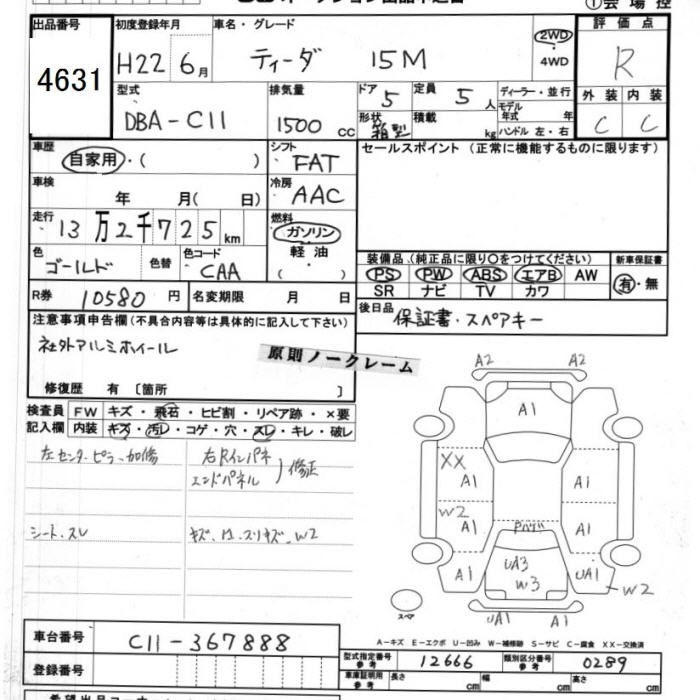 ① 会 場 控
出品番号 4631
初度登録年月 H22 6月
車名・グレード ティーダ 15M
2WD・4WD
評価点 R
外装 内装
C C
型式 DBA-C11
排気量 1500 cc
ドア 5
定員 5人
形状 箱型
積載 kg
ディーラー・並行
モデル年式 年
ハンドル 左・右
車歴 自家用・( )
シフト FAT
セールスポイント (正常に機能するものに限ります)
車検 年 月( 日)
冷房 AAC
走行 13万2千725km
燃料 ガソリン・軽油・( )
色 ゴールド
色替
色コード CAA
装備品 (純正品に限り○をつけてください)
PS PW ABS エアB AW
SR ナビ TV カワ
新車保証書 有・無
R券 10580円
名変期限 月 日
後日品 保証書・スペアキー
注意事項申告欄 (不具合内容等は具体的に記入して下さい)
社外アルミホイール
原則ノークレーム
修復歴 有 [箇所 ]
検査員記入欄
FW キズ・飛石・ヒビ割・リペア跡・×要
内装 キズ・汚レ・コゲ・穴・スレ・キレ・破レ
左センターピラー加修
右Rインパネ
エンドパネル ) 修正
シート、スレ
A2 A2
A1
XX A1 A1
W2 A1 A1
A1 UA3 W3 UA1 W2
UA1 A1
スペア
車台番号 C11-367888
A-キズ E-エクボ U-凹み W-補修跡 S-サビ C-腐食 XX-交換済
登録番号
型式指定番号 参考 12666
類別区分番号 参考 0289
車庫証明用 参考 長さ cm 幅 cm 高さ cm